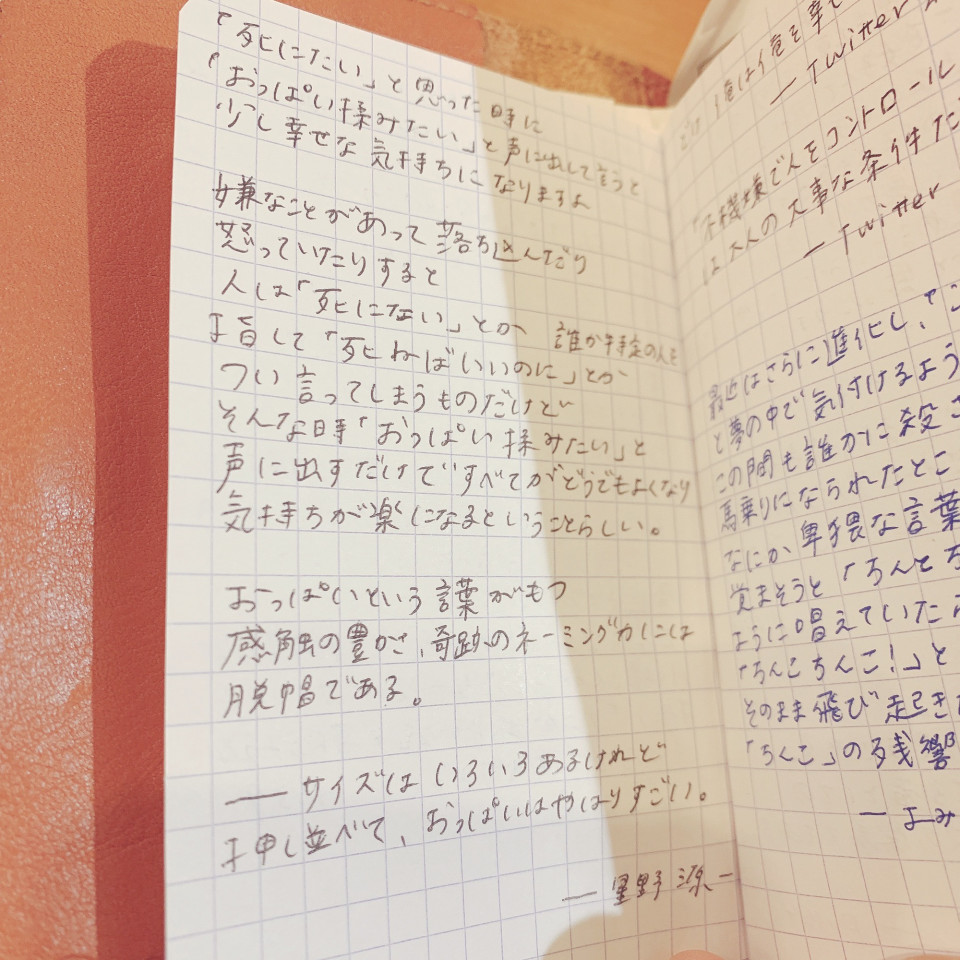 「死にたい」と思った時に
「おっぱい揉みたい」と声に出して言うと
少し幸せな気持ちになりますよ
嫌なことがあって落ち込んだり
怒っていたりすると
人は「死にたい」とか 誰か特定の人を
指して「死ねばいいのに」とか
つい言ってしまうものだけど
そんな時「おっぱい揉みたい」と
声に出すだけですべてがどうでもよくなり
気持ちが楽になるということらしい。
おっぱいという言葉がもつ
感触の豊かさ、奇跡のネーミングカには
脱帽である。
── サイズはいろいろあるけれど
押し並べて、おっぱいはやはりすごい。
── 星野 源 ─
俺は俺を幸せ
── Twitter
「不機嫌で人をコントロール
は大人の大事な条件だ
── Twitter
最近はさらに進化し、「こ
と夢の中で気付けるよう
この間も誰かに殺さ
馬乗りになられたところ
なにか卑猥な言葉
覚まそうと「ちんこち
ように唱えていたら
「ちんこちんこ!」と
そのまま飛び起き
「ちんこ」の残響
── よみ